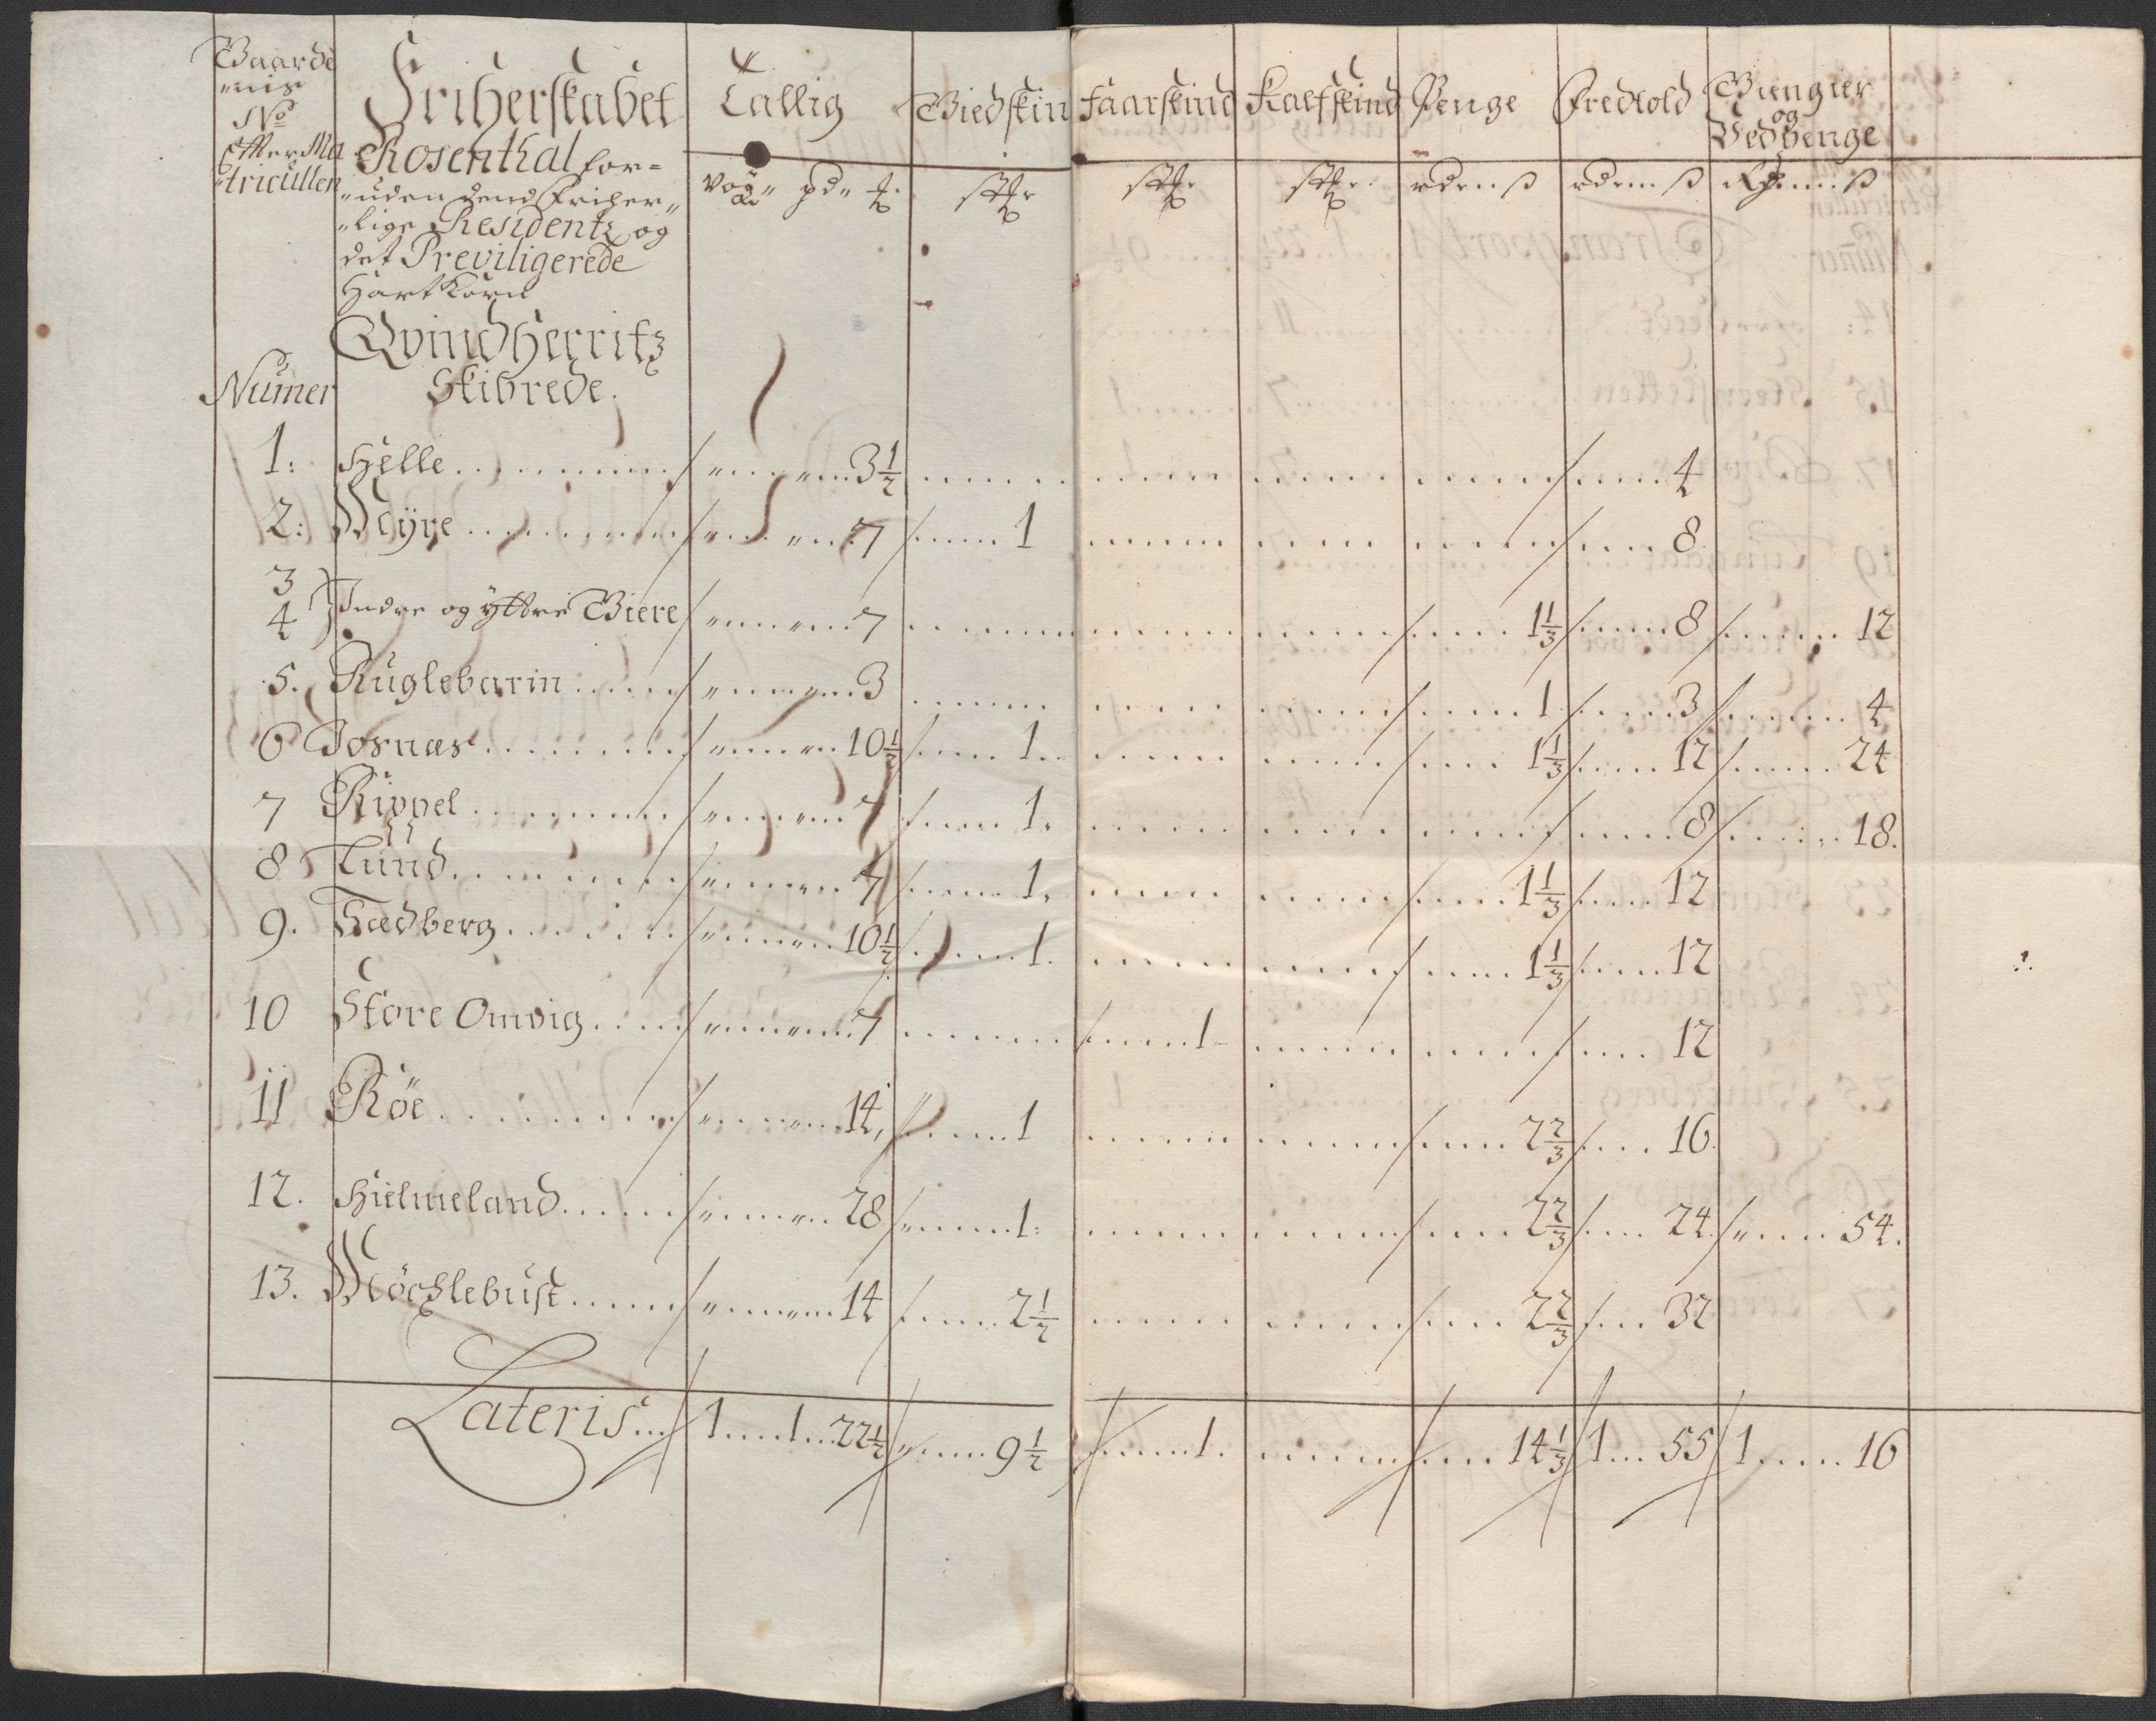 Gaarde
"nis
No
Efter Ma
"tricullen
Friherskabet
Rosenthal for=
"uden dend Friher"
"lige Residentz og
det Previligerede
Hart Korn
Qvindherritz
Skibrede.
Numer
Tallig
Giedskin
Faarskind
Kalfskind
Penge
Fredtold
Giengier
og
Vedpenge
Vog" pd" ℔.
stkr
stkr
stkr
rdr ß
rdr ß
Rdr ß
1: Helle 3½ 4
2: Myre 7 1 8
3
4 Indre og yttre Biere 7 1⅓ 8 12
5. Kuglebarin 3 1 3 4
6 Josnæs 10½ 1 1⅓ 12 24
7 Rippel 7 1 8 18.
8 Lund 7 1 1⅓ 12
9. Sædberg 10½ 1 1⅓ 12
10 Store Omvig 7 1 12
11 Röe 14 1 2⅔ 16
12. Hielmeland 28 1 2⅔ 24 54.
13. Möchlebust 14 2½ 2⅔ 32
Lateris 1 1 22½ 9½ 1 14⅓ 1 55 1 16